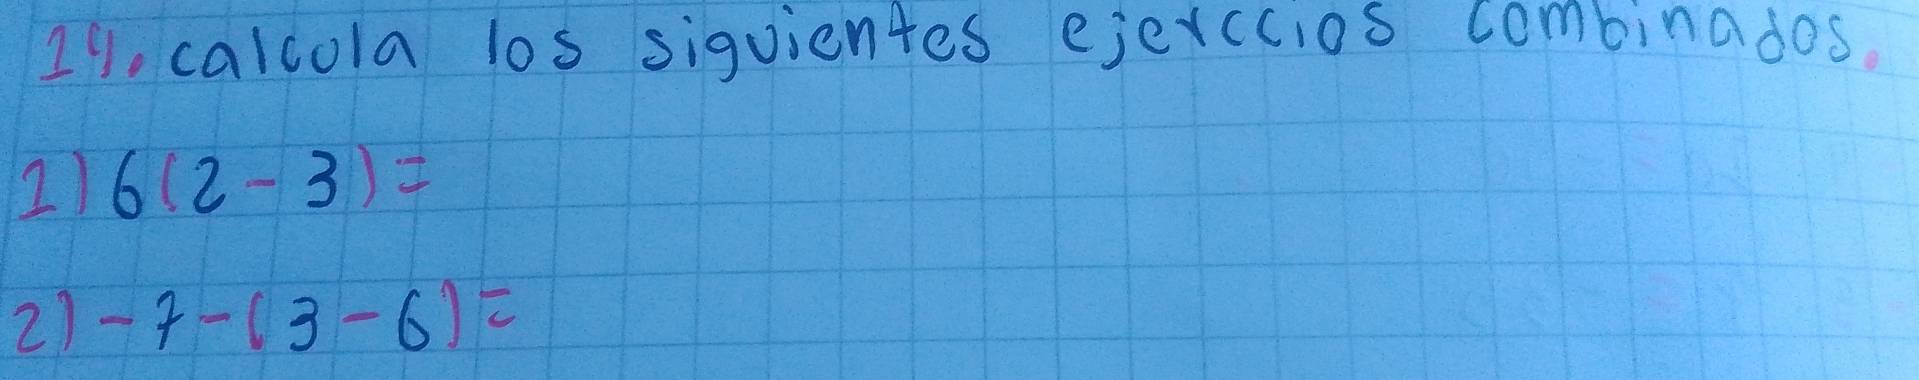 14. calcula los siguientes ejerccios combinados.
1) 6(2-3)=
2) -7-(3-6)=